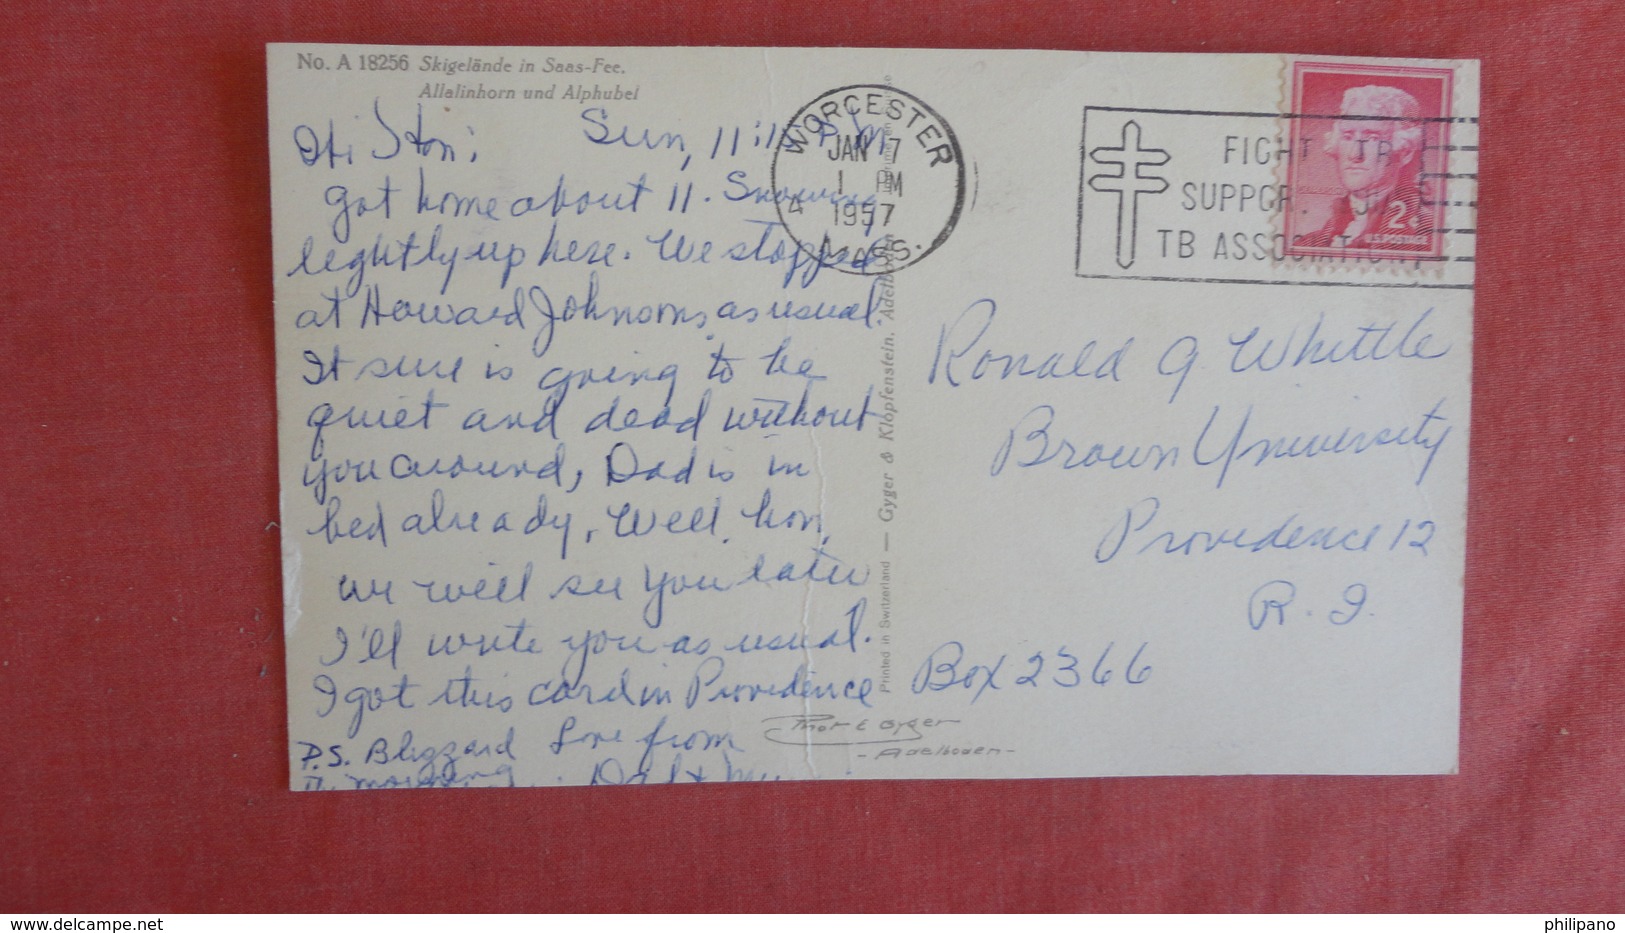 No. A 18256 Skigelände in Saas-Fee.
Allalinhorn und Alphubel
Hi Hon; Sun, 11:15 P.M
Got home about 11. Snowing
lightly up here. We stopped
at Howard Johnsons, as usual.
It sure is going to be
quiet and dead without
you around, Dad is in
bed already, Well, hon,
we will see you later
I'll write you as usual.
I got this card in Providence
P.S. Blizzard Love from
morning. Dad &
Printed in Switzerland — Gyger & Klopfenstein, Adelboden
WORCESTER
JAN 7
1 PM
1957
MASS.
FIGHT TB
SUPPORT
TB ASSOCIATION
2¢
U.S. POSTAGE
Ronald G Whittle
Brown University
Providence 12
R. I.
Box 2366
Phot E Gyger
- Adelboden -
www.delcampe.net
philipano